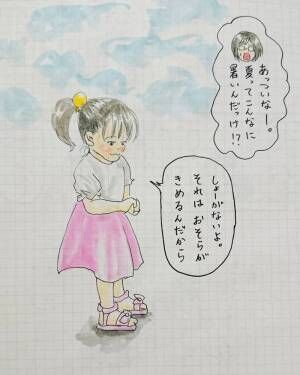 あっついなー。
夏ってこんなに
暑いんだっけ!?
しょーがないよ。
それは おそらが
きめるんだから